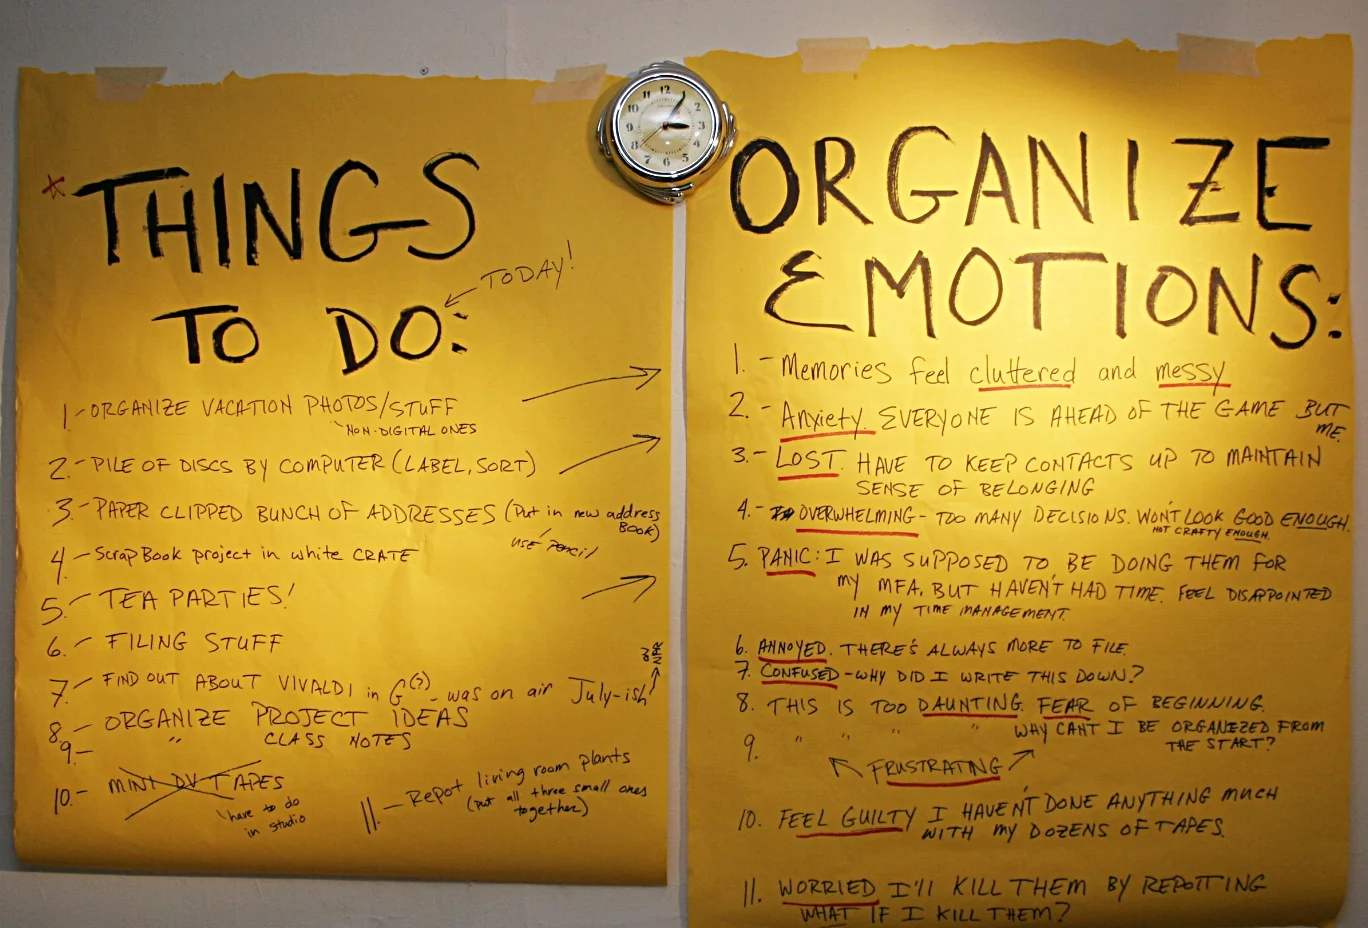 * THINGS
TO DO:
TODAY!
1 - ORGANIZE VACATION PHOTOS/STUFF
NON-DIGITAL ONES
2. - PILE OF DISCS BY COMPUTER (LABEL, SORT)
3. - PAPER CLIPPED BUNCH OF ADDRESSES (Put in new address
BOOK)
USE Pencil
4. - ScrapBook project in white CRATE
5. - TEA PARTIES!
6. - FILING STUFF
7. - FIND OUT ABOUT VIVALDI in G(?) - was on air July-ish
8. - ORGANIZE PROJECT IDEAS
9. - " CLASS NOTES
10. - MINI DV TAPES
have to do
in studio
11. - Repot living room plants
(put all three small ones
together)
12
1
2
3
4
5
6
7
8
9
10
11
ORGANIZE
EMOTIONS:
1. - Memories feel cluttered and messy
2. - Anxiety. EVERYONE IS AHEAD OF THE GAME BUT
ME.
3. - LOST. HAVE TO KEEP CONTACTS UP TO MAINTAIN
SENSE OF BELONGING
4. - OVERWHELMING - TOO MANY DECISIONS. WON'T LOOK GOOD ENOUGH.
NOT CRAFTY ENOUGH.
5. PANIC: I WAS SUPPOSED TO BE DOING THEM FOR
MY MFA, BUT HAVEN'T HAD TIME. FEEL DISAPPOINTED
IN MY TIME MANAGEMENT.
6. ANNOYED. THERE'S ALWAYS MORE TO FILE.
7. CONFUSED - WHY DID I WRITE THIS DOWN?
8. THIS IS TOO DAUNTING. FEAR OF BEGINNING.
9. " " " " WHY CAN'T I BE ORGANIZED FROM
THE START?
FRUSTRATING
10. FEEL GUILTY I HAVEN'T DONE ANYTHING MUCH
WITH MY DOZENS OF TAPES.
11. WORRIED I'LL KILL THEM BY REPOTTING
WHAT IF I KILL THEM?